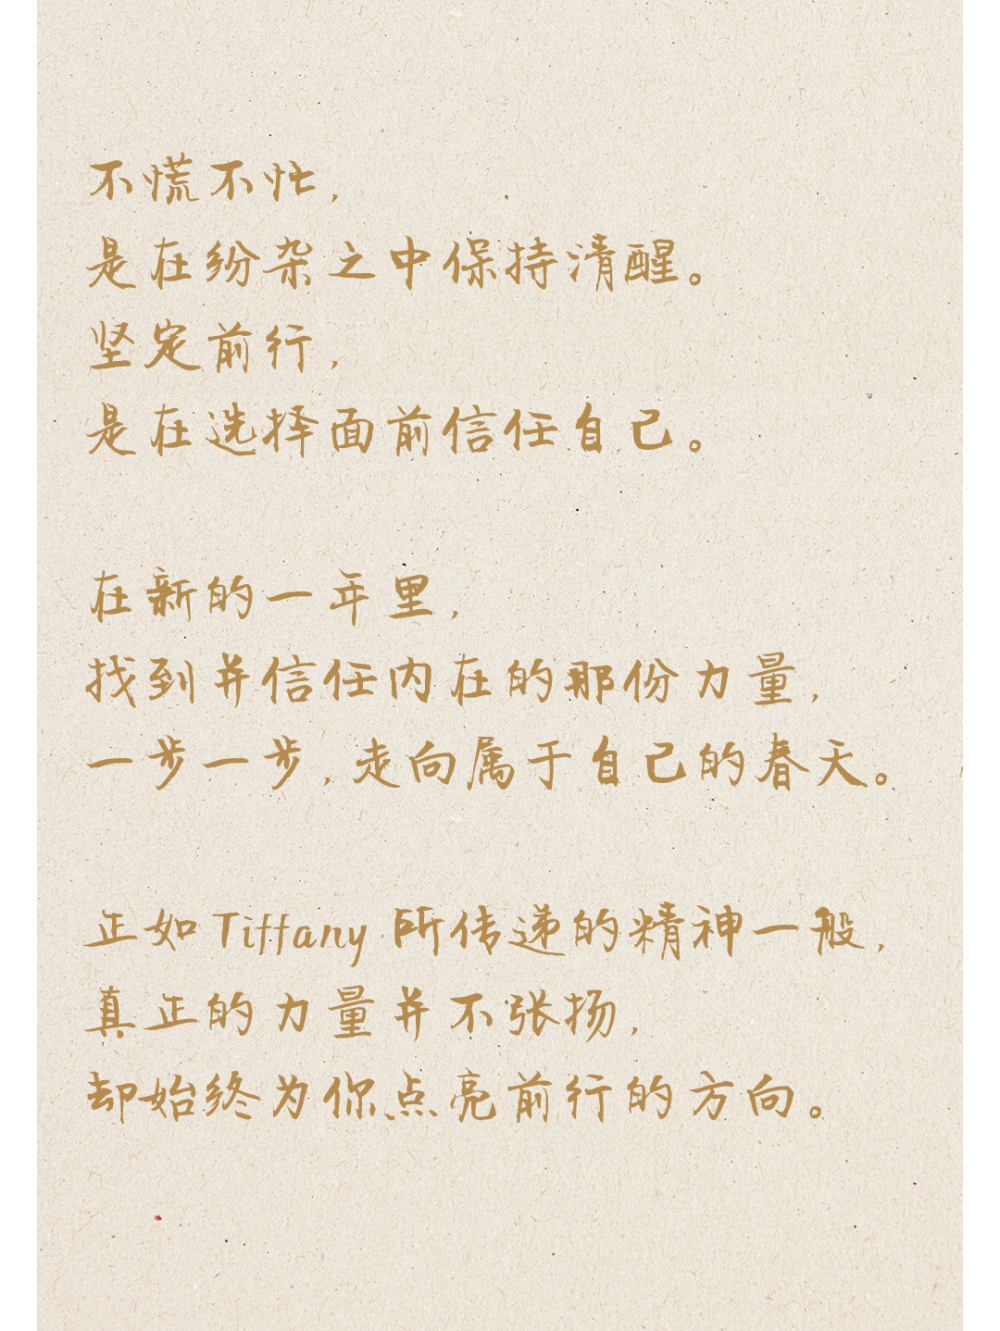 不慌不忙，
是在纷杂之中保持清醒。
坚定前行，
是在选择面前信任自己。
在新的一年里，
找到并信任内在的那份力量，
一步一步，走向属于自己的春天。
正如 Tiffany 所传递的精神一般，
真正的力量并不张扬，
却始终为你点亮前行的方向。